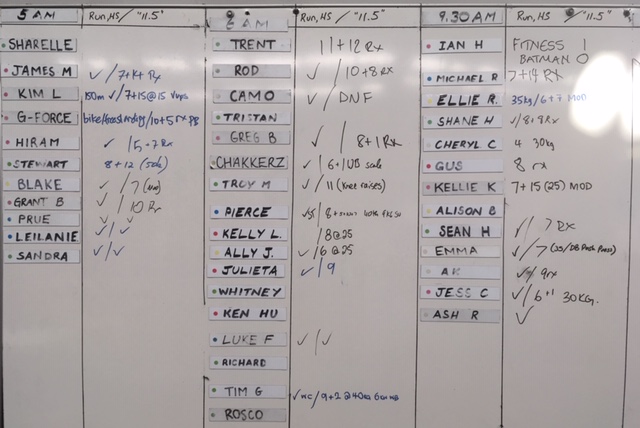 5 AM Run, HS / "11.5"
SHARELLE
JAMES M ✓ / 7+14 Rx
KIM L 150m ✓ / 7+15@15 V ups
G-FORCE
HIRAM ✓ / 5+7Rx
STEWART 8+12
BLAKE ✓ / 7
GRANT B ✓ / 10 Rx
PRUE ✓ ✓
LEILANIE ✓/✓
SANDRA ✓/✓
AM Run, HS / "11.5"
TRENT 11+12 Rx
ROD ✓ / 10+8 Rx
CAMO ✓ / DNF
TRISTAN
GREG B ✓ / 8+1 Rx
CHAKKERZ ✓ / 6+1 scale
TROY M ✓ / 11 (Knee raises)
PIERCE
KELLY L. /8@25
ALLY J. ✓/6@25
JULIETA ✓/9
WHITNEY
KEN HU
LUKE F ✓/✓
RICHARD
TIM G ✓ / 9+2 @40kg
ROSCO
9.30AM Run, HS / "11.5"
IAN H FITNESS 1
BATMAN 0
MICHAEL R 7+14 Rx
ELLIE R. 35kg/6+7 MOD
SHANE H ✓/8+8Rx
CHERYL C 4 30kg
GUS 8 rx
KELLIE K 7+15(25) MOD
ALISON B
SEAN H ✓/ 7 Rx
EMMA ✓/7 (25/DB Push Press)
AK ✓/ 9rx
JESS C ✓/6+1 30KG.
ASH R ✓